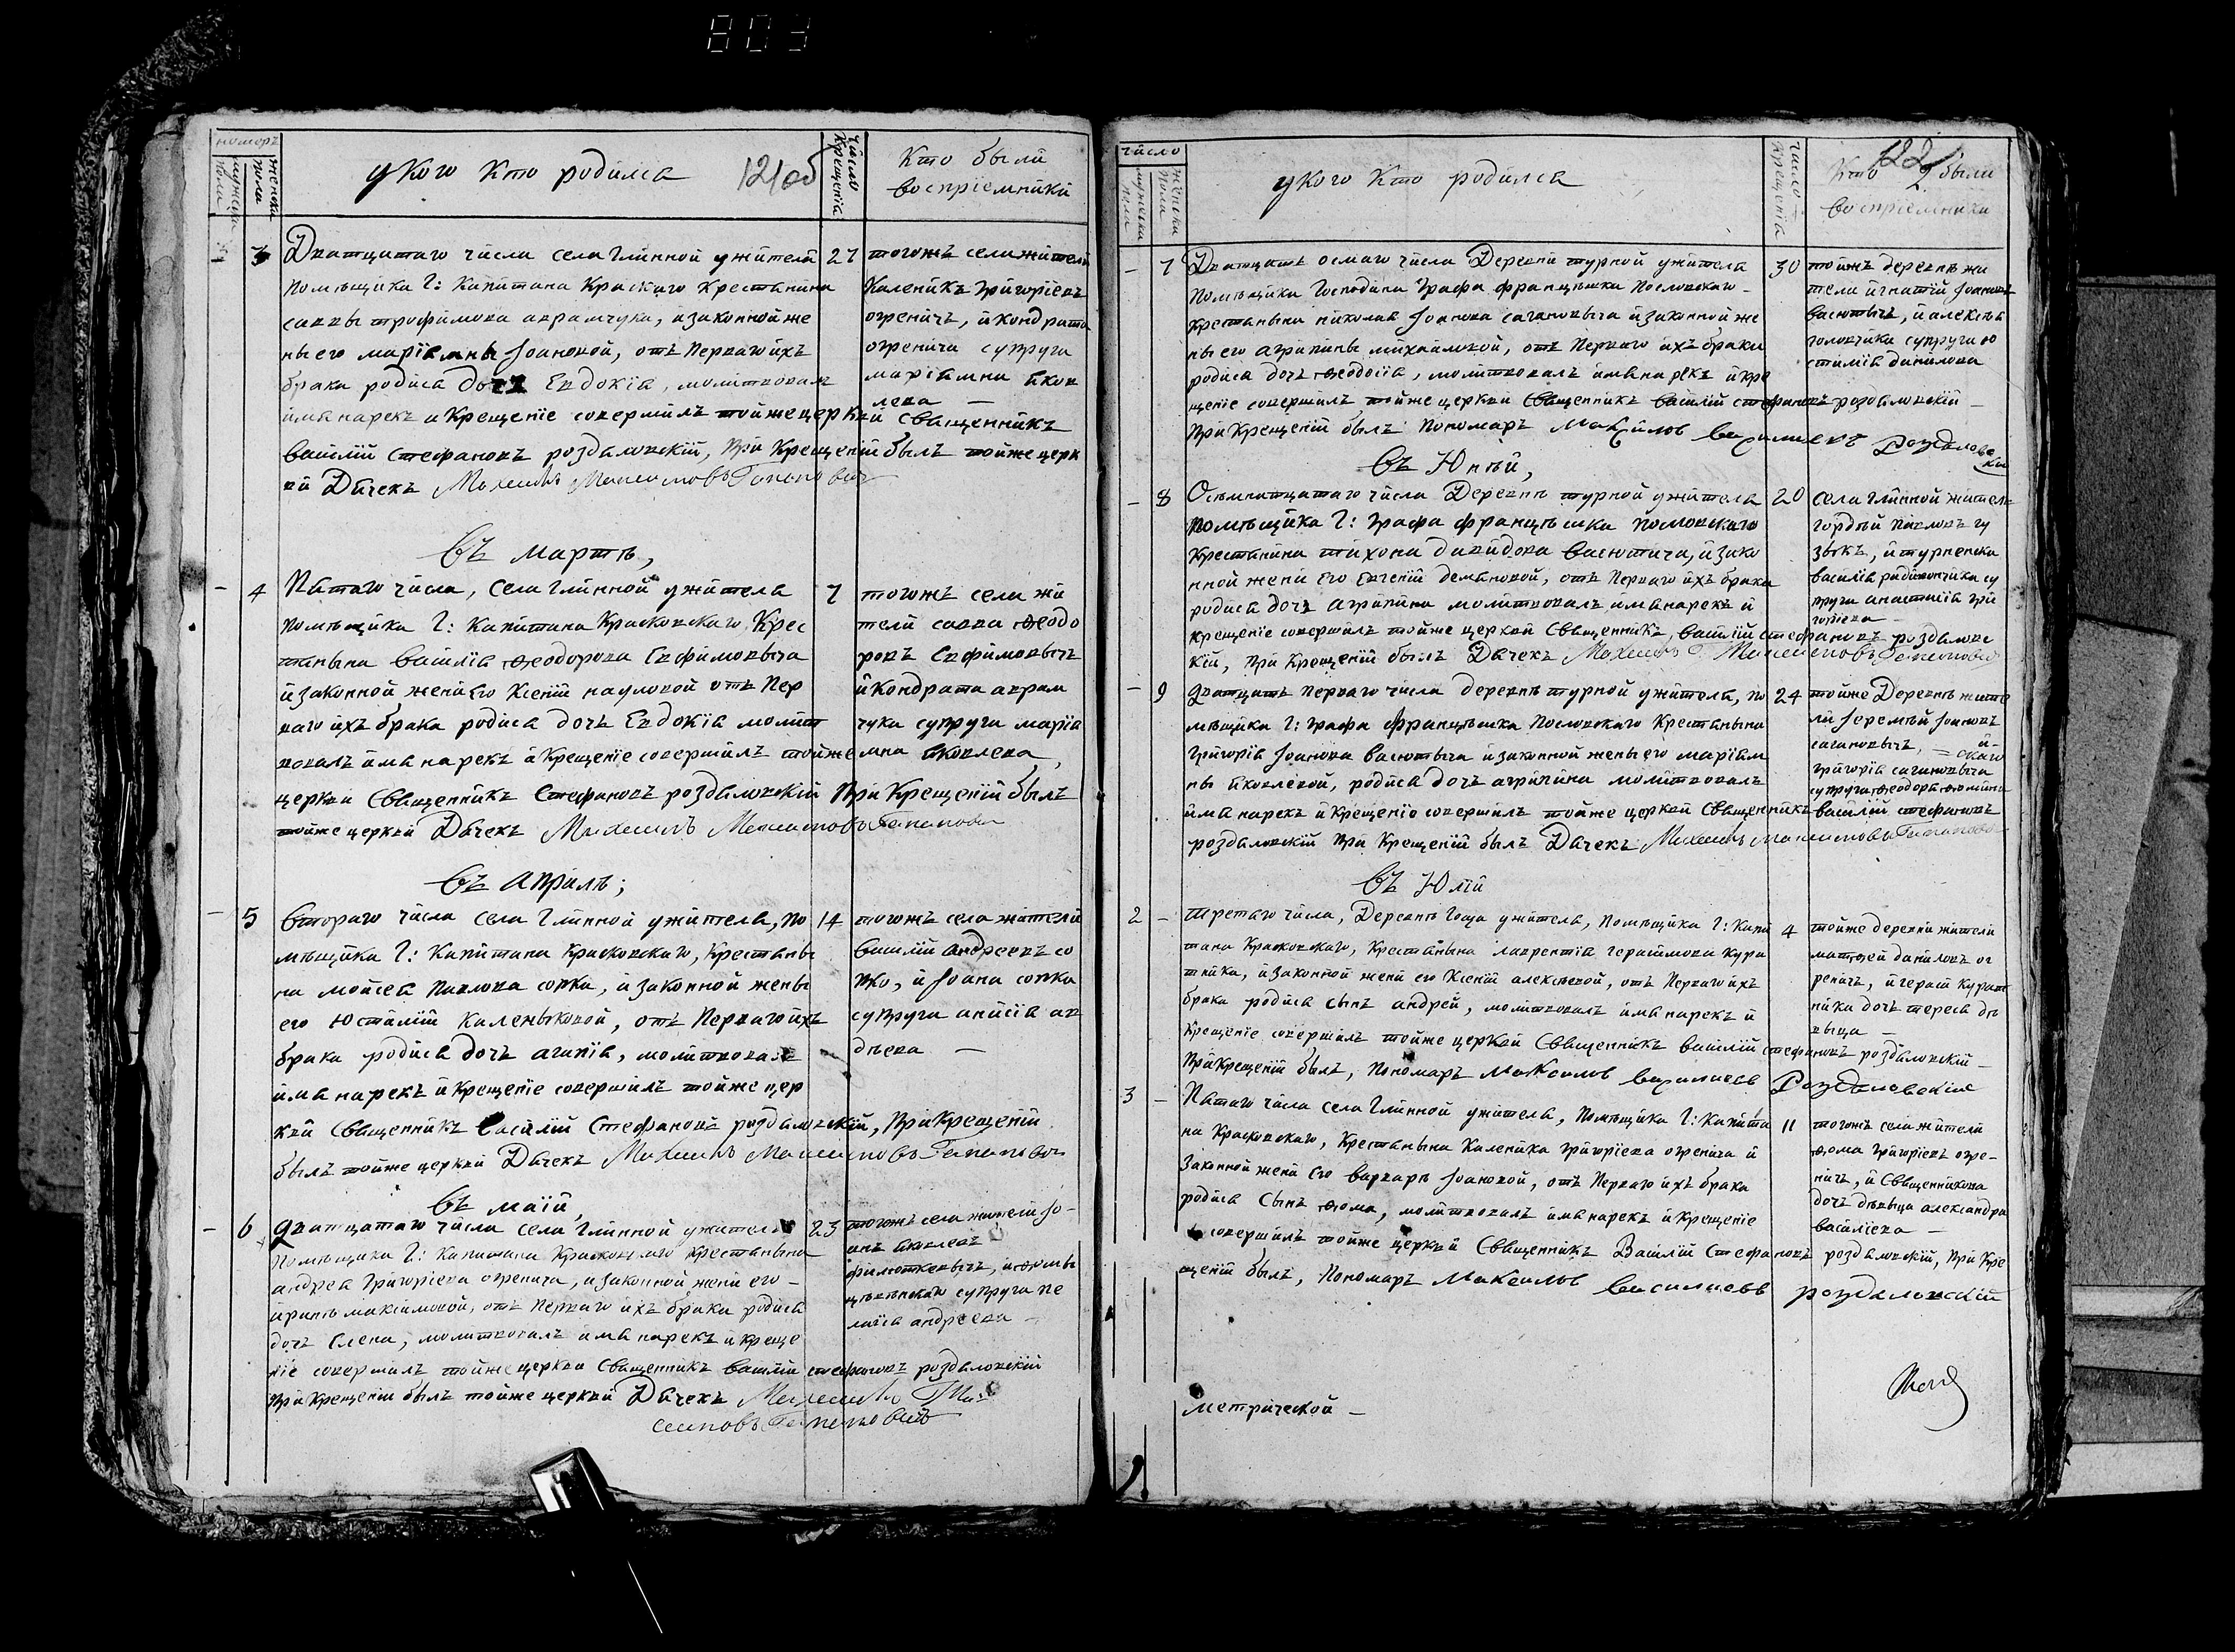 803
номеръ
мужеска пола
женска пола
у кого кто родился
121 об
число крещенія
кто были
воспріемники
3
Дватцатаго числа села Глинной у жителя
помѣщика Г: Капитана Краскаго крестянина
саввы трофимова аврамчука, и законной же
ны его маріямны Іоановой, отъ перваго ихъ
брака родися дочь Евдокія, молитвовалъ
имя нарекъ и крещеніе совершилъ тойже церкви священникъ
василій стефановъ роздаловскій, при крещеніи былъ тойже церк
ви Дячекъ
27
тогожъ села жители
Каленикъ григоріевъ
огреничъ, и кондрата
огренича супруга
маріамна яков
лева —
въ мартѣ,
- 4
Пятаго числа, села Глинной у жителя
помѣщика Г: Капитана Красковскаго Крес
тянына василія ѳеодорова Евфимовыча
и законной жени его Ксеніи науловой отъ пер
ваго ихъ брака родися дочь Евдокія молит
вовалъ имя нарекъ и крещеніе совершилъ тойже
церкви священникъ Стефановъ роздаловскій при крещеніи былъ
тойже церкви Дячекъ
7
тогожъ села жи
тели савва ѳеодо
ровъ Евфимовычъ
и кондрата аврам
чука супруга марія
мна яковлева,
въ априлѣ;
- 5
Втораго числа села Глинной у жителя, по
мѣщика Г: Капитана Красковскаго, крестяны
на мойсея павлова сопка, и законной жены
его Юстиліи каленыковой, отъ перваго ихъ
брака родися дочь агапія, молитвовалъ
имя нарекъ и крещеніе совершилъ тойже цер
кви священникъ василій Стефановъ роздаловскій, при крещеніи
былъ тойже церкви Дячекъ
14
тогожъ села жители
василій андреевъ со
пко, и Іоана сопка
супруга анисія ав
дѣева —
въ маіи,
- 6
дватцатаго числа села Глинной у жителя
помѣщика Г: Капитана Красковскаго крестянына
андрея григоріева огренича, и законной жени его -
ирины максимовой, отъ перваго ихъ брака родися
дочь Елена, молитвовалъ имя нарекъ и креще
ніе совершилъ тойже церкви священникъ василій стефановъ роздаловскій
при крещеніи былъ тойже церкви Дячекъ
23
тогожъ села жители Іо-
анъ яковлевъ
супруга пе
лагія андреева —
число
мужеска пола
женска пола
у кого кто родился
число крещенія
122
кто были
воспріемники
- 7
Дватцать осмаго числа Деревни турной у жителя
помѣщика господина графа францѣшка пословскаго -
крестянына николая Іоанова сагановыча и законной же
ны его агрипины михайловой, отъ перваго ихъ брака
родися дочь ѳеодосія, молитвовалъ имя нарекъ и кре
щеніе совершилъ тойже церкви священникъ василій стефановъ роздаловскій —
при крещеніи былъ пономаръ Максимъ василиевъ роздаловс
кій
30
тойжъ деревнѣ жи
тели игнатій Іоановъ
васютычъ, и алексѣя
головчика супруга ю
стилія данилова
въ Юніи,
- 8
Осьмнатцатаго числа Деревнѣ турной у жителя
помѣщика Г: графа францѣшка пословскаго
крестянина тихона давидова васютича, и зако
нной жени его Евгеніи демяновой, отъ перваго ихъ брака
родися дочь агрипина молитвовалъ имя нарекъ и
крещеніе совершилъ тойже церкви священникъ, василій стефановъ роздаловс
кій, при крещеніи былъ Дячекъ
20
села глинной жители
гордѣй павловъ гу
зыкъ, и турненска
василія радивончика су
пруга анастасія гри
горіева —
- 9
дватцать перваго числа деревнѣ турной у жителя, по
мѣщика Г: графа францѣшка пословскаго крестянына
григорія Іоанова васютыча и законной жены его маріям
ны яковлевой, родися дочь агрипина молитвовалъ
имя нарекъ и крещеніе совершилъ тойже церкви священникъ василій стефановъ
роздаловскій при крещеніи былъ Дячекъ
24
тойже Деревнѣ жите
ли Іеремѣй Іоановъ
сагановычъ, и
григорія сагановыча
супруга ѳеодора
въ Юліи
2 -
третаго числа, Деревнѣ Гоща у жителя, помѣщика Г: Капи
тана Красковскаго, крестянына лаврентія герасимова кура
тника, и законной жени его Ксеніи алексѣевой, отъ перваго ихъ
брака родися сынъ андрей, молитвовалъ имя нарекъ и
крещеніе совершилъ тойже церкви священникъ василій стефановъ роздаловскій —
при крещеніи былъ, пономаръ Максимъ василиевъ Роздаловскій
4
тойже деревни жители
матѳей даниловъ ог
реничъ, и герасима курат
ника дочъ тереса дѣ
выца —
3 -
Пятаго числа села Глинной у жителя, помѣщика Г: Капита
на Красковскаго, крестянына Каленика григоріева огренича и
законной жени его варвары Іоановой, отъ перваго ихъ брака
родися сынъ ѳома, молитвовалъ имя нарекъ и крещеніе
совершилъ тойже церкви священникъ Василій Стефановъ роздаловскій, при кре
щеніи былъ, пономаръ Максимъ василиевъ роздаловскій
11
тогожъ села жители
ѳома григоріевъ огре-
ничъ, и священникова
дочъ дѣвыца александра
василіева —
метрической —